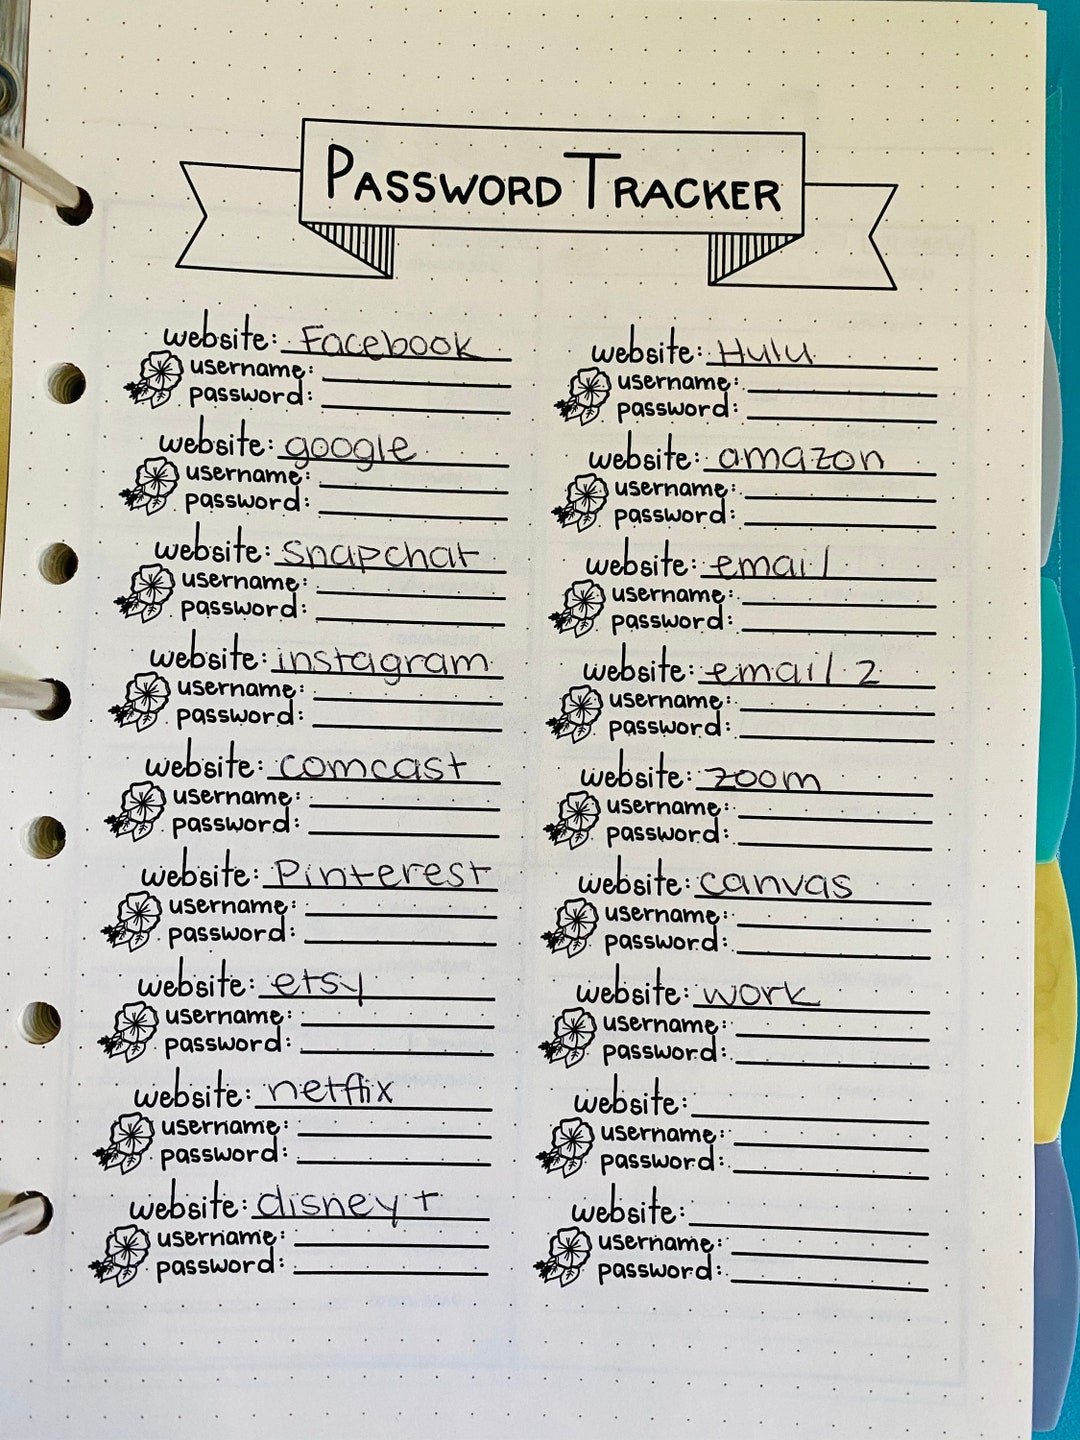 PASSWORD TRACKER
website: Facebook
username:
password:
website: google
username:
password:
website: snapchat
username:
password:
website: instagram
username:
password:
website: comcast
username:
password:
website: Pinterest
username:
password:
website: etsy
username:
password:
website: netflix
username:
password:
website: disney+
username:
password:
website: Hulu
username:
password:
website: amazon
username:
password:
website: email
username:
password:
website: email 2
username:
password:
website: zoom
username:
password:
website: canvas
username:
password:
website: work
username:
password:
website:
username:
password:
website:
username:
password: